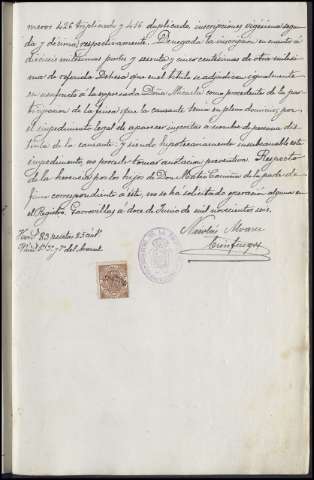 meros 426 triplicado y 416 duplicado, inscripciones vigésima segun-
da y décima, respectivamente. Denegada la inscripción en cuanto á
dieciseis milésimas partes y sesenta y cinco centésimas de otra milési-
ma de referida Dehesa que en el título se adjudican igualmente
en usufructo á la expresada Doña Micaela como procedentes de la par-
ticipación de la finca que la causante tenía en pleno dominio, por
el impedimento legal de aparecer inscritas á nombre de persona dis-
tinta de la causante; y siendo hipotecariamente insubsanable este
impedimento, no procede tomar anotación preventiva. Respecto
de la herencia por los hijos de Don Matías
correspondiente á éste, no se ha solicitado operación alguna en
el Registro. Garrovillas á doce de Junio de mil novecientos seis.
Hons. 83 pesetas 25 cént.
del Arancel
Nicolás Alvarez
Cienfuegos